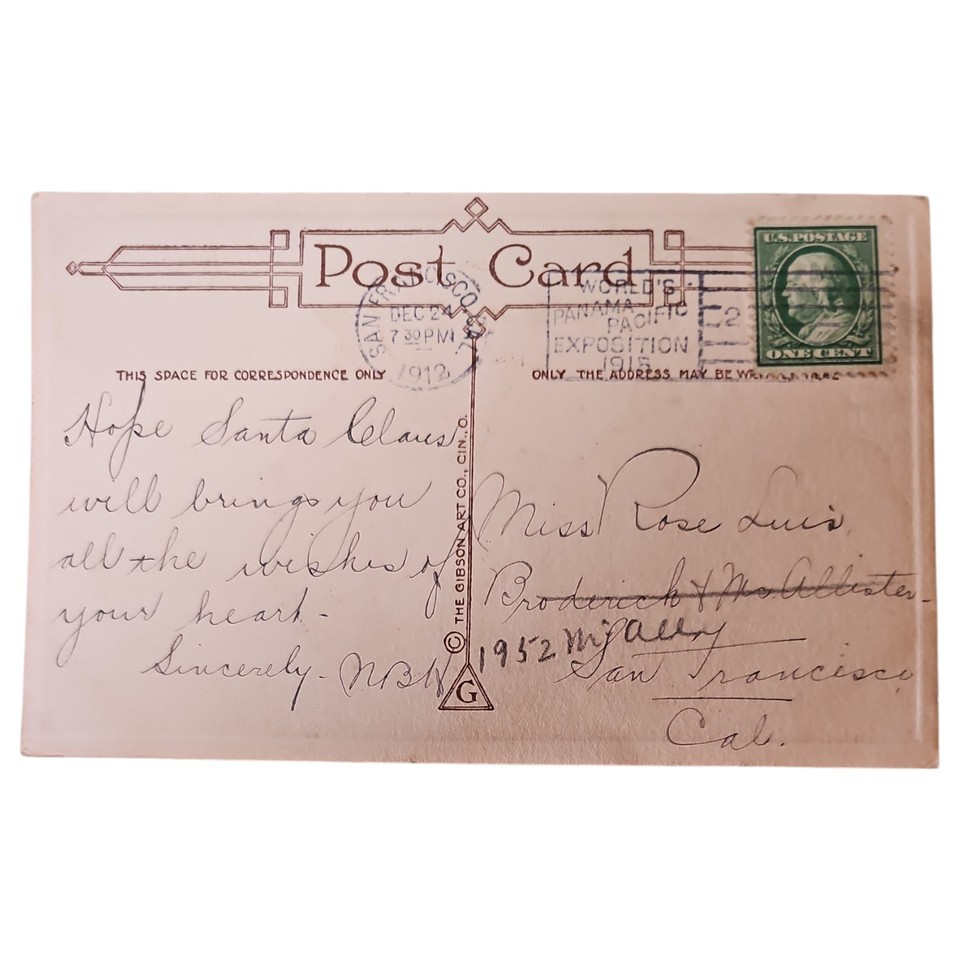 Post Card
SAN FRANCISCO, CAL.
DEC 24
7 30 PM
1912
WORLD'S
PANAMA-
PACIFIC
EXPOSITION
1915
2
U.S. POSTAGE
ONE CENT
THIS SPACE FOR CORRESPONDENCE ONLY
ONLY THE ADDRESS MAY BE
Hope Santa Claus
will brings you
all the wishes of
your heart-
Sincerely- NBW
© THE GIBSON ART CO., CIN., O.
G
Miss Rose Luis
Broderick & McAllister-
1952
San Francisco
Cal.